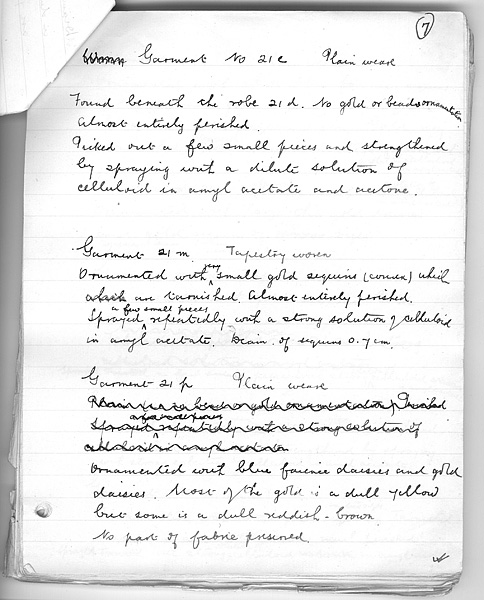 7
Garment No 21c Plain weave
Found beneath the robe 21d. No gold or beads ornamentation
Almost entirely perished.
Picked out a few small pieces and strengthened
by spraying with a dilute solution of
celluloid in amyl acetate and acetone.
Garment 21m. Tapestry woven
Ornamented with very small gold sequins (convex) which
are tarnished. Almost entirely perished.
Sprayed a few small pieces repeatedly with a strong solution of celluloid
in amyl acetate. Diam. of sequins 0.7 cm.
Garment 21p Plain weave
Ornamented with blue faience daisies and gold
daisies. Most of the gold is a dull yellow
but some is a dull reddish-brown
No part of fabric preserved.